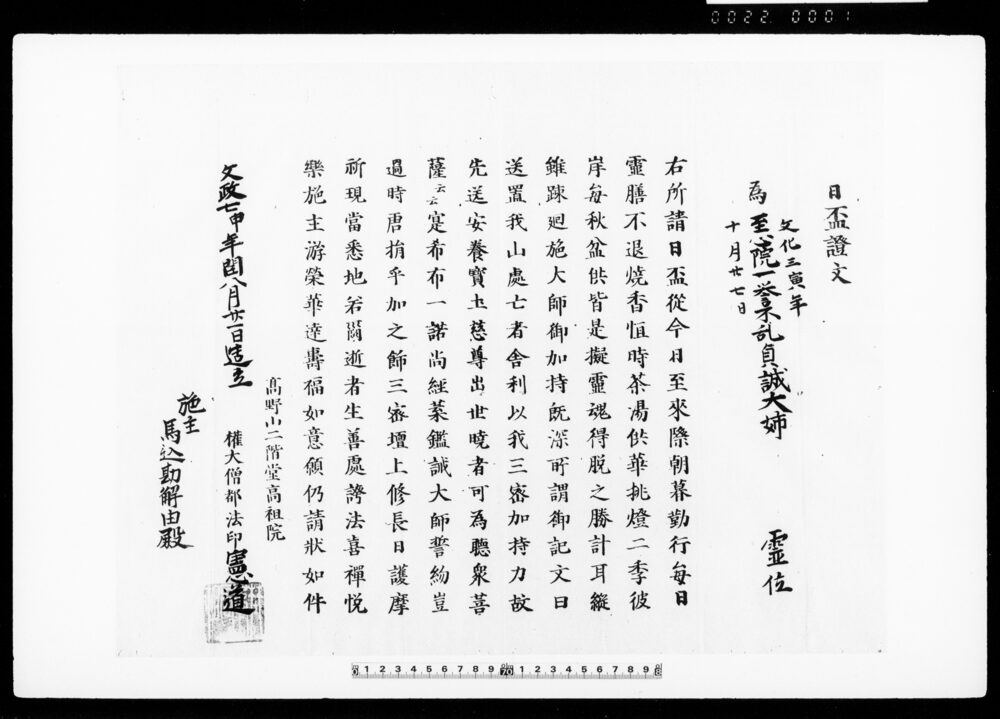 0022 0001
日盃證文
文化三寅年
為 至院一誉杲乱貞誠大姉 霊位
十月廿七日
右所請日盃從今日至來際朝暮勤行每日
靈膳不退燒香恒時茶湯供華挑燈二季彼
岸每秋盆供皆是擬靈魂得脱之勝計耳縱
雖踈廻施大師御加持既深所謂御記文曰
送置我山處亡者舍利以我三密加持力故
先送安養寶土慈尊出世曉者可為聽衆菩
薩云云寔希布一諾尚經菜鑑誠大師誓約豈
過時唐捐乎加之餝三密壇上修長日護摩
祈現當悉地若爾逝者生善處誇法喜禪悦
樂施主游榮華達壽福如意願仍請狀如件
高野山二階堂高祖院
文政七申年閏八月廿一日造立 權大僧都法印憲道
施主
馬込勘解由殿
1 2 3 4 5 6 7 8 9 20 1 2 3 4 5 6 7 8 9